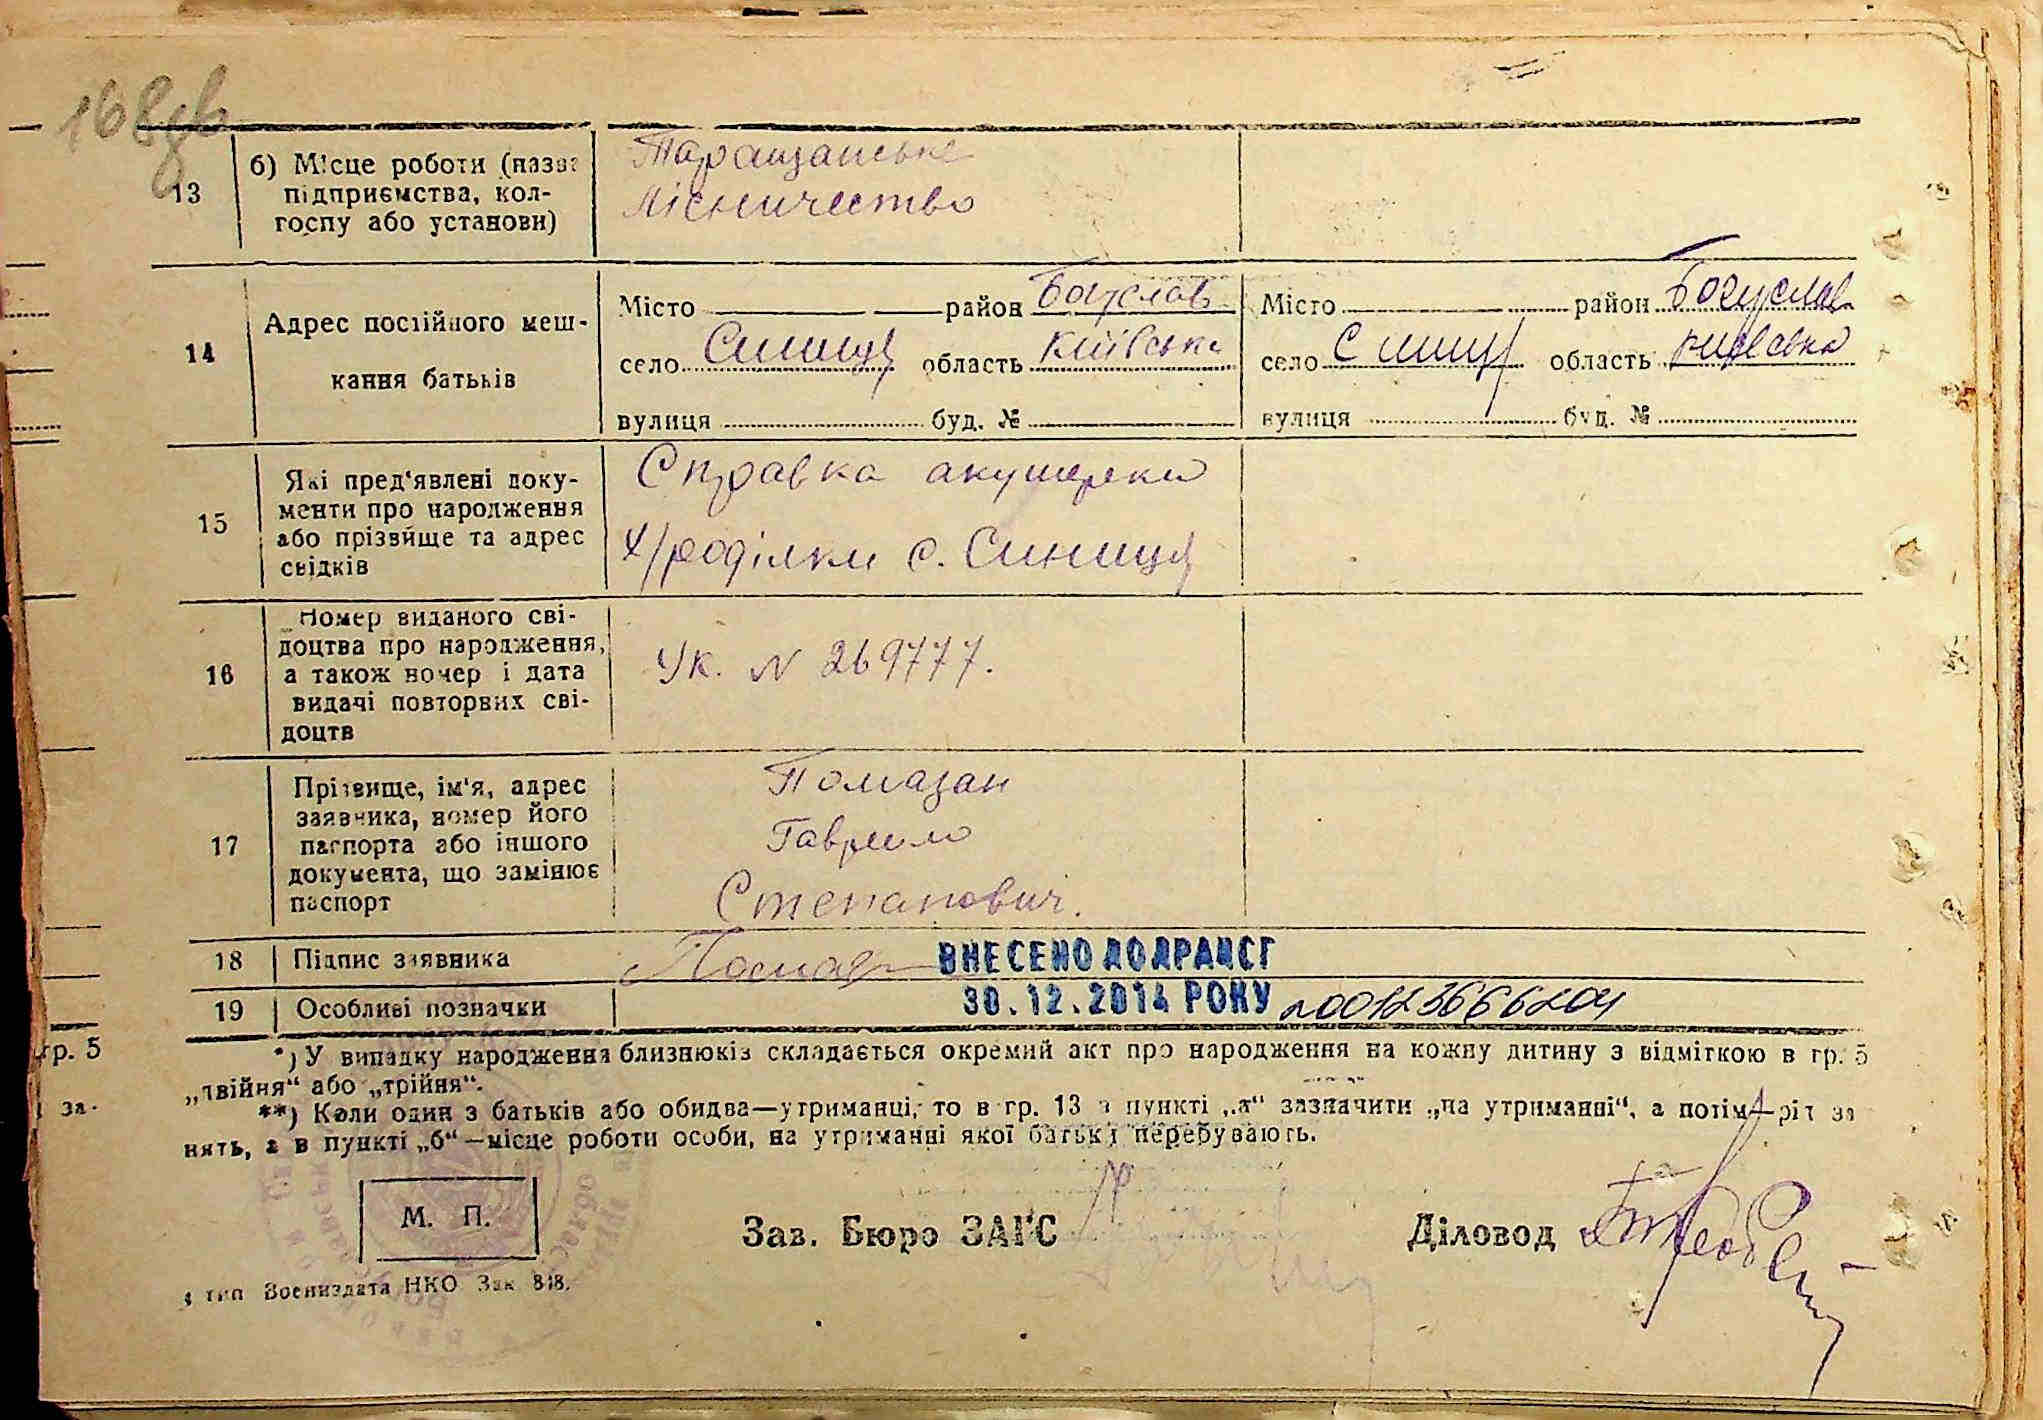 168зв
13
б) Місце роботи (назва
підприємства, кол-
госпу або установи)
Таращанське
лісничество
14
Адрес постійного меш-
кання батьків
Місто район Богуслав
село Синиця область Київська
вулиця буд. №
Місто район Богуслав
село Синиця область Київська
вулиця буд. №
15
Які пред'явлені доку-
менти про народження
або прізвище та адрес
свідків
Справка акушерки
к/роділки с. Синиця
16
Номер виданого сві-
доцтва про народження,
а також номер і дата
видачі повторних сві-
доцтв
Ук. N 269777.
17
Прізвище, ім'я, адрес
заявника, номер його
паспорта або іншого
документа, що замінює
паспорт
Помазан
Гаврило
Степанович.
18 Підпис заявника
ВНЕСЕНО ДО ДРАЦСГ
19 Особливі позначки
30.12.2014 РОКУ 00123666204
гр. 5
*) У випадку народження близнюків складається окремий акт про народження на кожну дитину з відміткою в гр. 5
„двійня“ або „трійня“.
за-
**) Коли один з батьків або обидва—утриманці, то в гр. 13 в пункті „а“ зазначити „на утриманні“, а потім—рід за
нять, а в пункті „б“—місце роботи особи, на утриманні якої батьки перебувають.
М. П.
Зав. Бюро ЗАГС
Діловод
4 тип Воениздата НКО Зак 848.